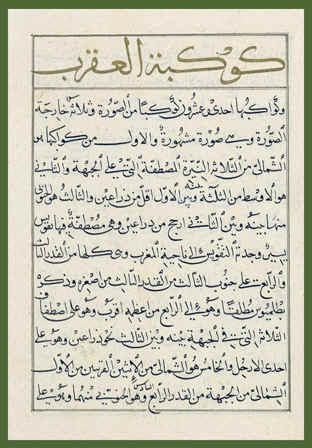 كوكبة العقرب
وكواكبها احدى وعشرون كوكبًا من الصورة وثلاثه خارجة
الصورة وهي صورة مشهورة والاول من كواكبها هو
الشمالى من الثلاثه النيرة المصطفة التي على الجبهة والثانى
هو الاوسط من الثلثة وبين الاول اقل من ذراعين والثالث هو الجنوبى
منها بينه وبين الثانى ارجح من ذراعين وهى مصطفة فيها تقويس
يسير وحدبة التقويس الى ناحية المغرب وهى كلها من القدر الثالث
والرابع على جنوب الثالث من القدر الثالث من اصغره وذكره
بطلميوس مطلقا وهو الى الرابع من اعظمه اقرب وهو على اصطفاف
الثلاثة التي في الجبهة بينه وبين الثالث نحو ذراعين وهو على
احدى الارجل والخامس هو الشمالى من الاثنين القريبين من الاول
الشمالى من الجبهة من القدر الرابع وهو الجنوبى منهما وهو على